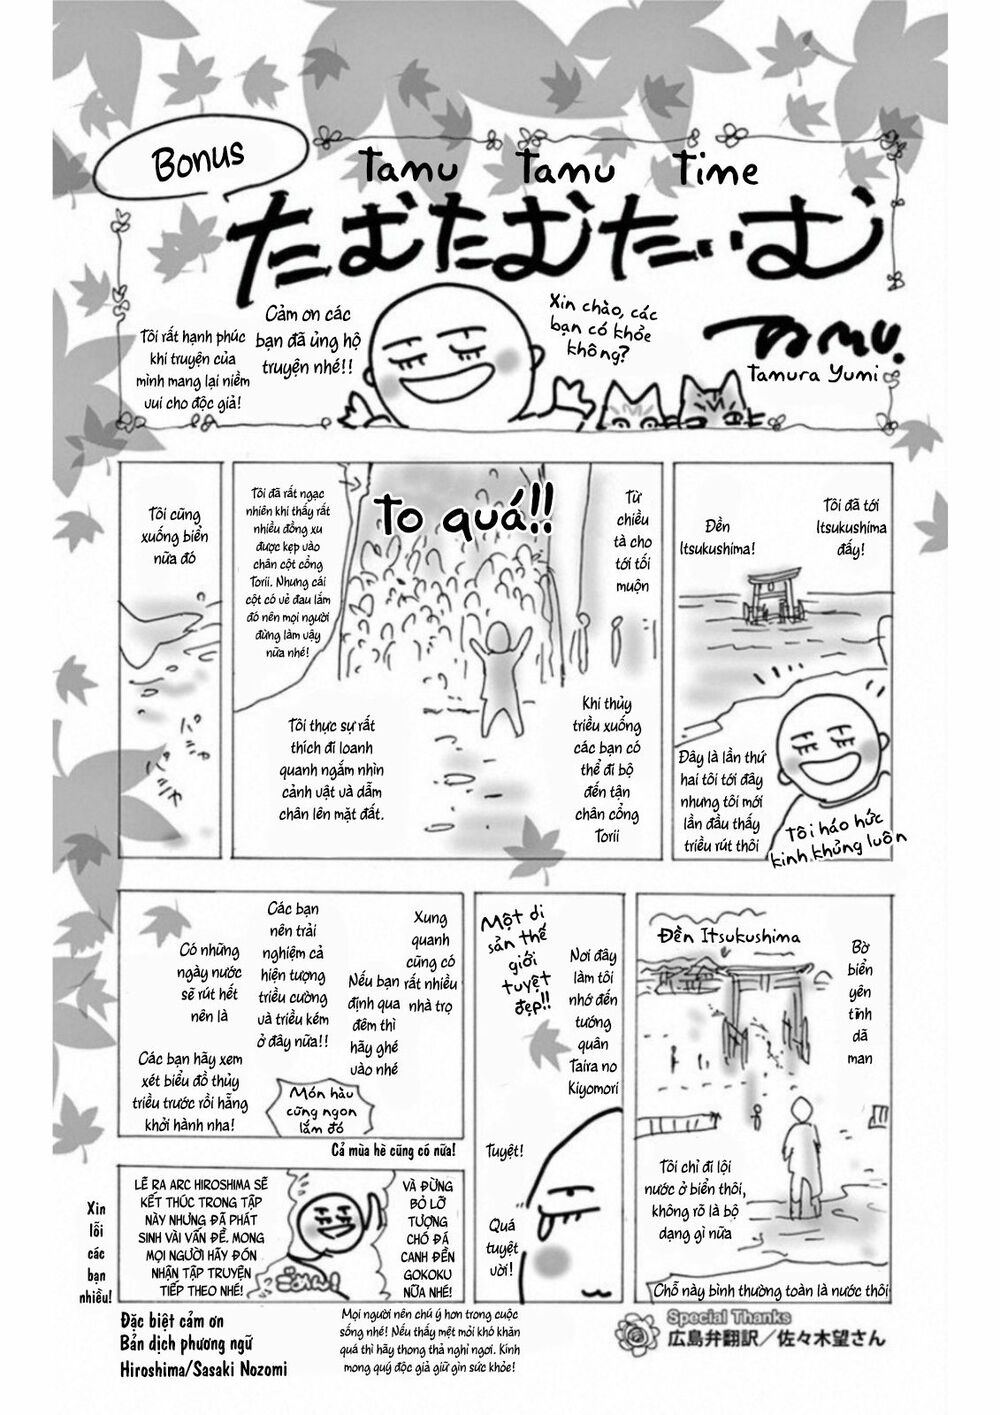 Bonus
Tamu Tamu Time
たむたむたぃいむ
Xin chào, các
bạn có khỏe
không?
TAMU.
Tamura Yumi
Cảm ơn các
bạn đã ủng hộ
truyện nhé!!
Tôi rất hạnh phúc
khi truyện của
mình mang lại niềm
vui cho độc giả!
Tôi đã tới
Itsukushima
đấy!
Đền
Itsukushima!
Đây là lần thứ
hai tôi tới đây
nhưng tôi mới
lần đầu thấy
triều rút thôi
Tôi háo hức
kinh khủng luôn
Từ
chiều
tà cho
tới tối
muộn
To quá!!
Tôi đã rất ngạc
nhiên khi thấy rất
nhiều đồng xu
được kẹp vào
chân cột cổng
Torii. Nhưng cái
cột có vẻ đau lắm
đó nên mọi người
đừng làm vậy
nữa nhé!
Khi thủy
triều xuống
các bạn có
thể đi bộ
đến tận
chân cổng
Torii
Tôi thực sự rất
thích đi loanh
quanh ngắm nhìn
cảnh vật và dẫm
chân lên mặt đất.
Tôi cũng
xuống biển
nữa đó
パシャ
パシャ
Đền Itsukushima
Bờ
biển
yên
tĩnh
dã
man
Tôi chỉ đi lội
nước ở biển thôi,
không rõ là bộ
dạng gì nữa
Chỗ này bình thường toàn là nước thôi
Một di
sản thế
giới
tuyệt
đẹp!!
Nơi đây
làm tôi
nhớ đến
tướng
quân
Taira no
Kiyomori
Tuyệt!
Quá
tuyệt
vời!
Xung
quanh
cũng có
rất nhiều
nhà trọ
Nếu bạn
định qua
đêm thì
hãy ghé
vào nhé
Các bạn
nên trải
nghiệm cả
hiện tượng
triều cường
và triều kém
ở đây nữa!!
Có những
ngày nước
sẽ rút hết
nên là
Các bạn hãy xem
xét biểu đồ thủy
triều trước rồi hẵng
khởi hành nha!
Món hàu
cũng ngon
lắm đó
Cả mùa hè cũng có nữa!
VÀ ĐỪNG
BỎ LỠ
TƯỢNG
CHÓ ĐÁ
CANH ĐỀN
GOKOKU
NỮA NHÉ!
LẼ RA ARC HIROSHIMA SẼ
KẾT THÚC TRONG TẬP
NÀY NHƯNG ĐÃ PHÁT
SINH VÀI VẤN ĐỀ. MONG
MỌI NGƯỜI HÃY ĐÓN
NHẬN TẬP TRUYỆN
TIẾP THEO NHÉ!
ごめん!
Xin
lỗi
các
bạn
nhiều!
Đặc biệt cảm ơn
Bản dịch phương ngữ
Hiroshima/Sasaki Nozomi
Mọi người nên chú ý hơn trong cuộc
sống nhé! Nếu thấy mệt mỏi khó khăn
quá thì hãy thong thả nghỉ ngơi. Kính
mong quý độc giả giữ gìn sức khỏe!
Special Thanks
広島弁翻訳／佐々木望さん